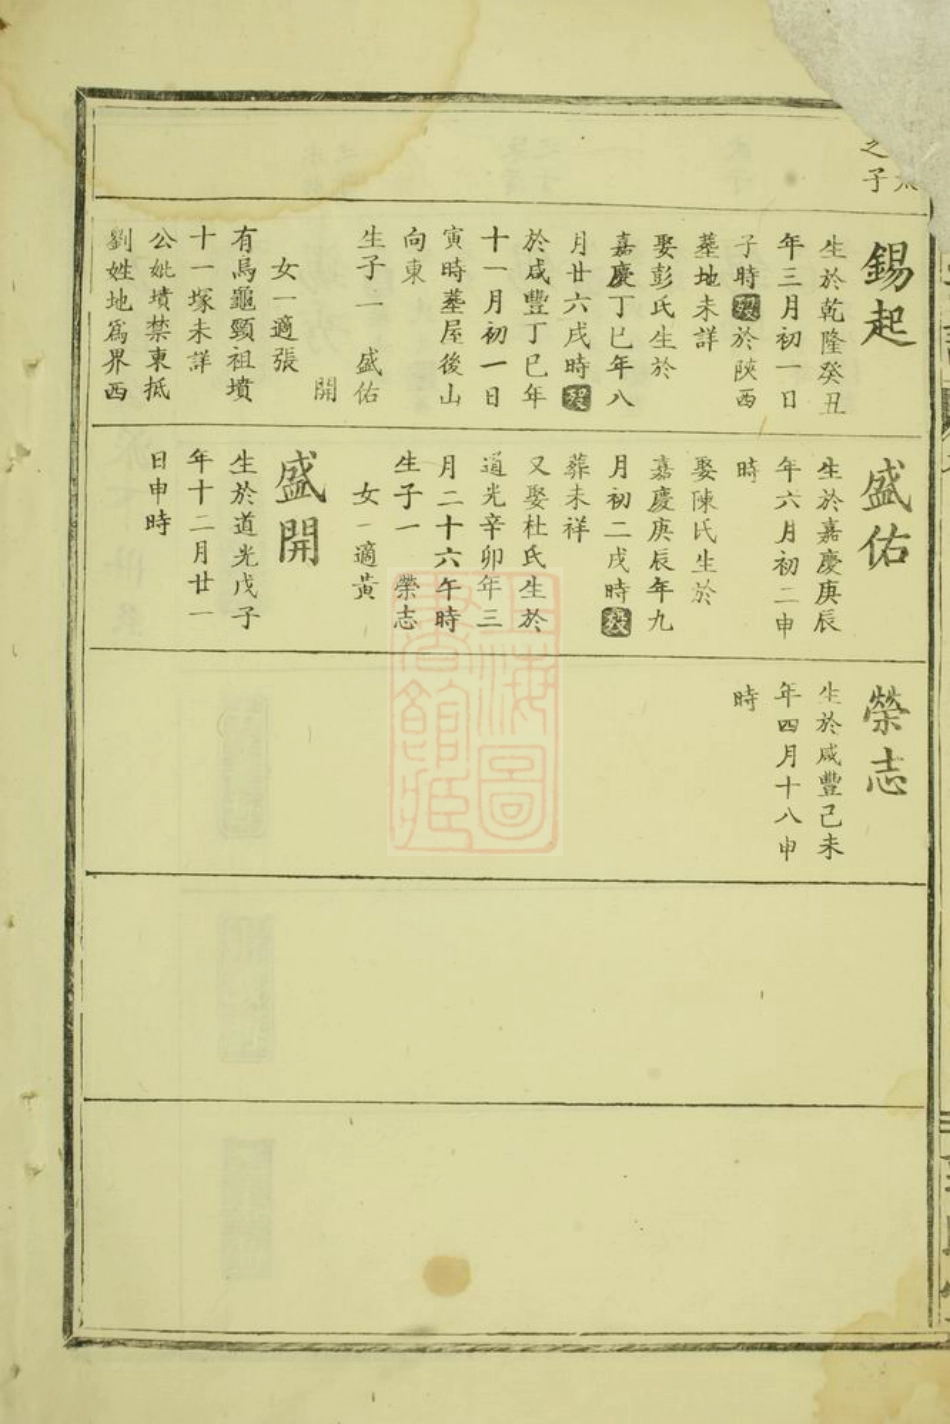 之子
錫起
生於乾隆癸丑
年三月初一日
子時歿於陝西
墓地未詳
娶彭氏生於
嘉慶丁巳年八
月廿六戌時歿
於咸豐丁巳年
十一月初一日
寅時墓屋後山
向東
生子二　盛佑
開
女一適張
有馬龜頸祖墳
十一塚未詳
公妣墳禁東抵
劉姓地爲界西
盛佑
生於嘉慶庚辰
年六月初二申
時
娶陳氏生於
嘉慶庚辰年九
月初二戌時歿
葬未祥
又娶杜氏生於
道光辛卯年三
月二十六午時
生子一　榮志
女一適黃
盛開
生於道光戊子
年十二月廿一
日申時
榮志
生於咸豐己未
年四月十八申
時
上海圖
書館藏